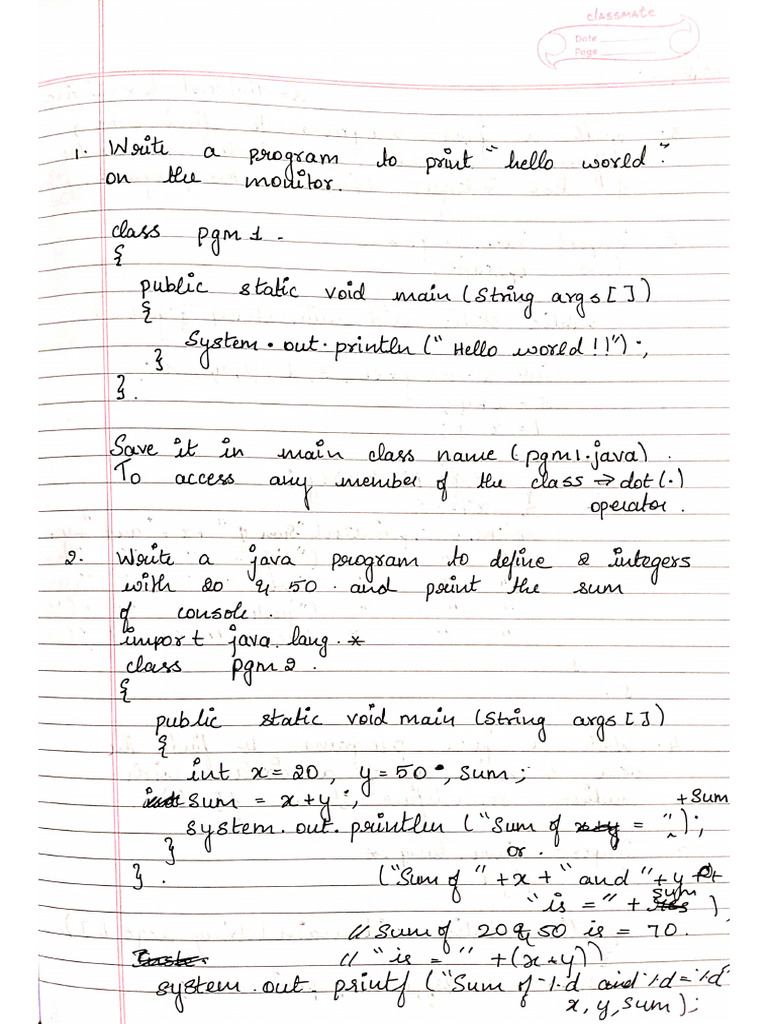 classmate
Date
Page
1. Write a program to print "hello world".
on the monitor.
class pgm 1.
{
public static void main (String args [])
{
System.out.println ("Hello world!!");
}
}.
Save it in main class name (pgm1.java).
To access any member of the class → dot (.)
operator.
2. Write a java program to define 2 integers
with 20 & 50. and print the sum
of console.
import java.lang.*
class pgm 2.
{
public static void main (String args [])
{
int x = 20, y = 50, sum;
sum = x+y;
+sum
system.out.println ("Sum of x+y = ");
} or.
}. ("Sum of " +x + "and "+y +
"is =" + sum )
// Sum of 20 & 50 is = 70.
// "is = " +(x+y))
system.out.printf ("Sum of %d and %d = %d"
x, y, sum);